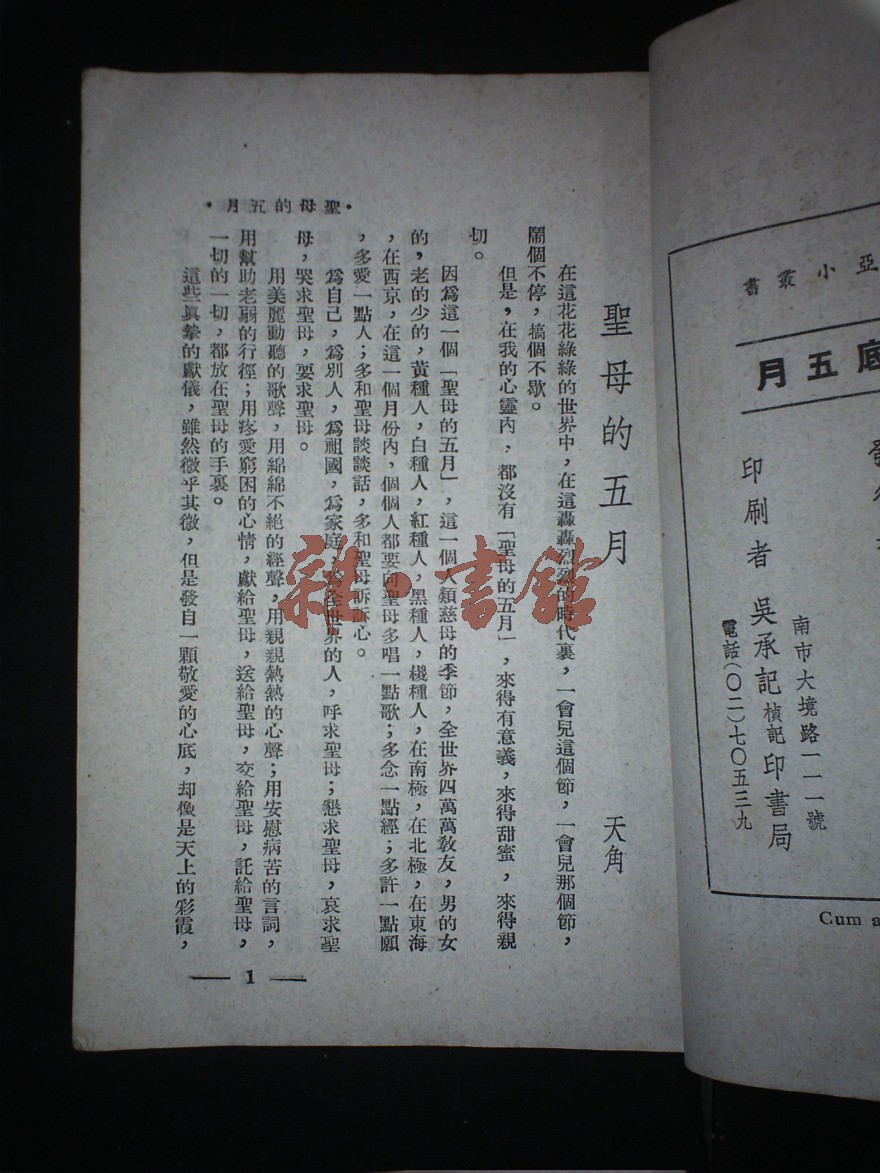 亞小叢書
底五月
印刷者 吳承記楨記印書局
南市大境路一一一號
電話(〇二)七〇五三九
Cum a
•聖母的五月•
聖母的五月
天角
在這花花綠綠的世界中，在這轟轟烈烈的時代裏，一會兒這個節，一會兒那個節，
鬧個不停，搞個不歇。
但是，在我的心靈內，都沒有「聖母的五月」，來得有意義，來得甜蜜，來得親
切。
因爲這一個「聖母的五月」，這一個人類慈母的季節，全世界四萬萬敎友，男的女
的，老的少的，黃種人，白種人，紅種人，黑種人，椶種人，在南極，在北極，在東海
，在西京，在這一個月份內，個個人都要向聖母多唱一點歌；多念一點經；多許一點願
，多愛一點人；多和聖母談談話，多和聖母訴訴心。
爲自己，爲別人，爲祖國，爲家庭，爲全世界的人，呼求聖母；懇求聖母，哀求聖
母，哭求聖母，要求聖母。
用美麗動聽的歌聲，用綿綿不絕的經聲，用親親熱熱的心聲；用安慰病苦的言詞，
用幫助老弱的行徑；用疼愛窮困的心情，獻給聖母，送給聖母，交給聖母，託給聖母，
一切的一切，都放在聖母的手裏。
這些眞摯的獻儀，雖然微乎其微，但是發自一顆敬愛的心底，却像是天上的彩霞，
— 1 —
雜·書館